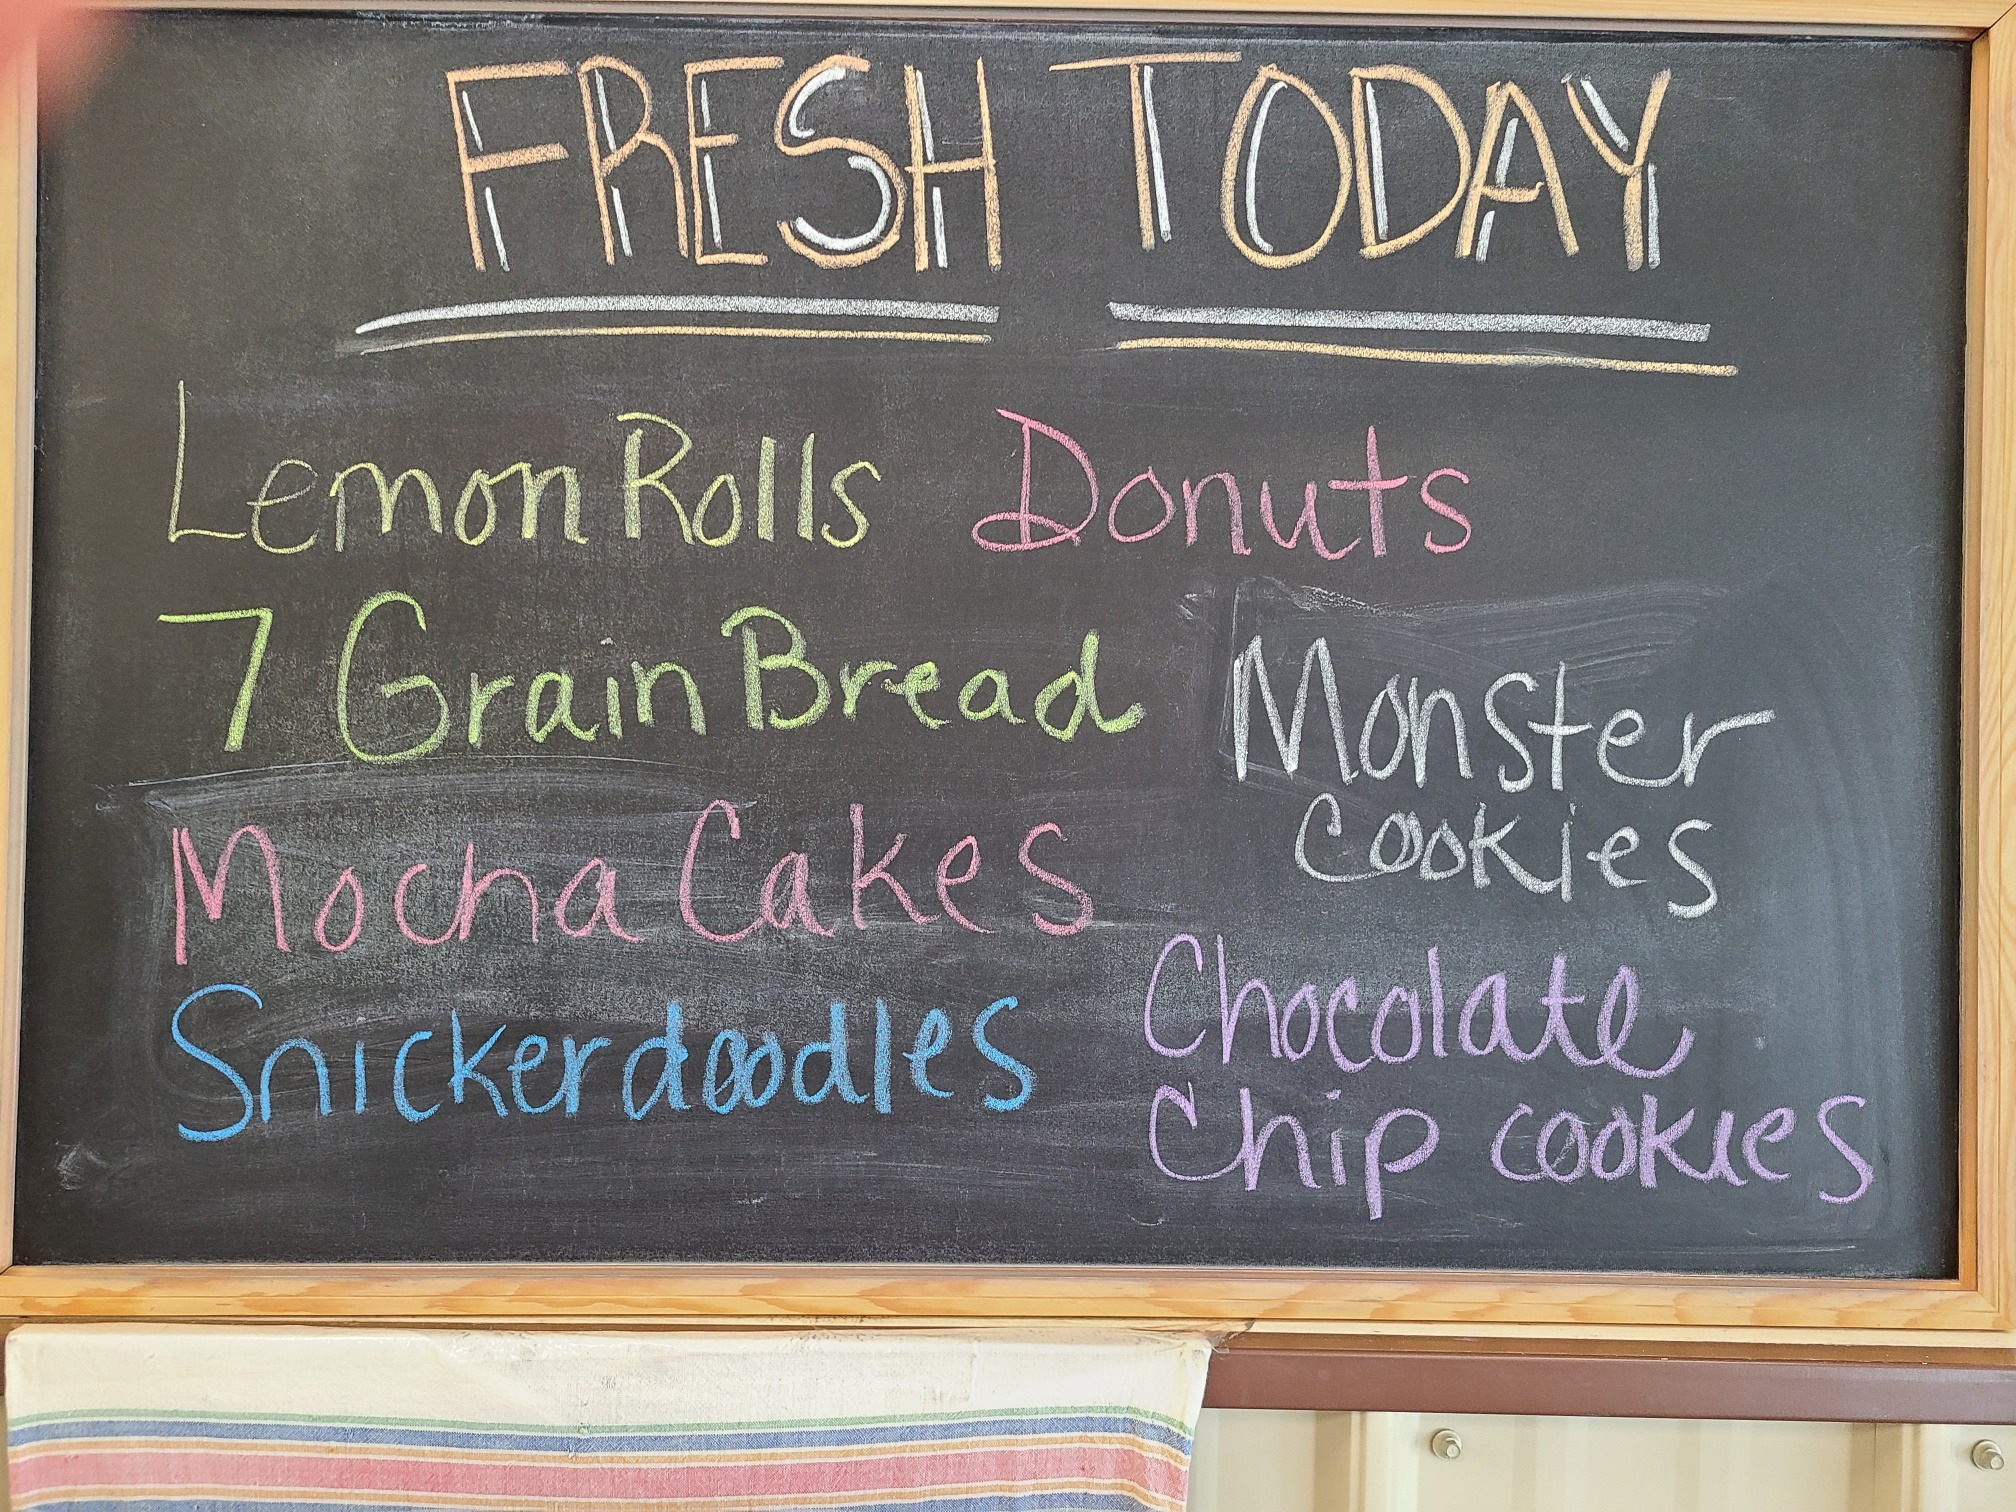 FRESH TODAY
Lemon Rolls Donuts
7 Grain Bread
Monster
Cookies
Mocha Cakes
Snickerdoodles
Chocolate
Chip cookies